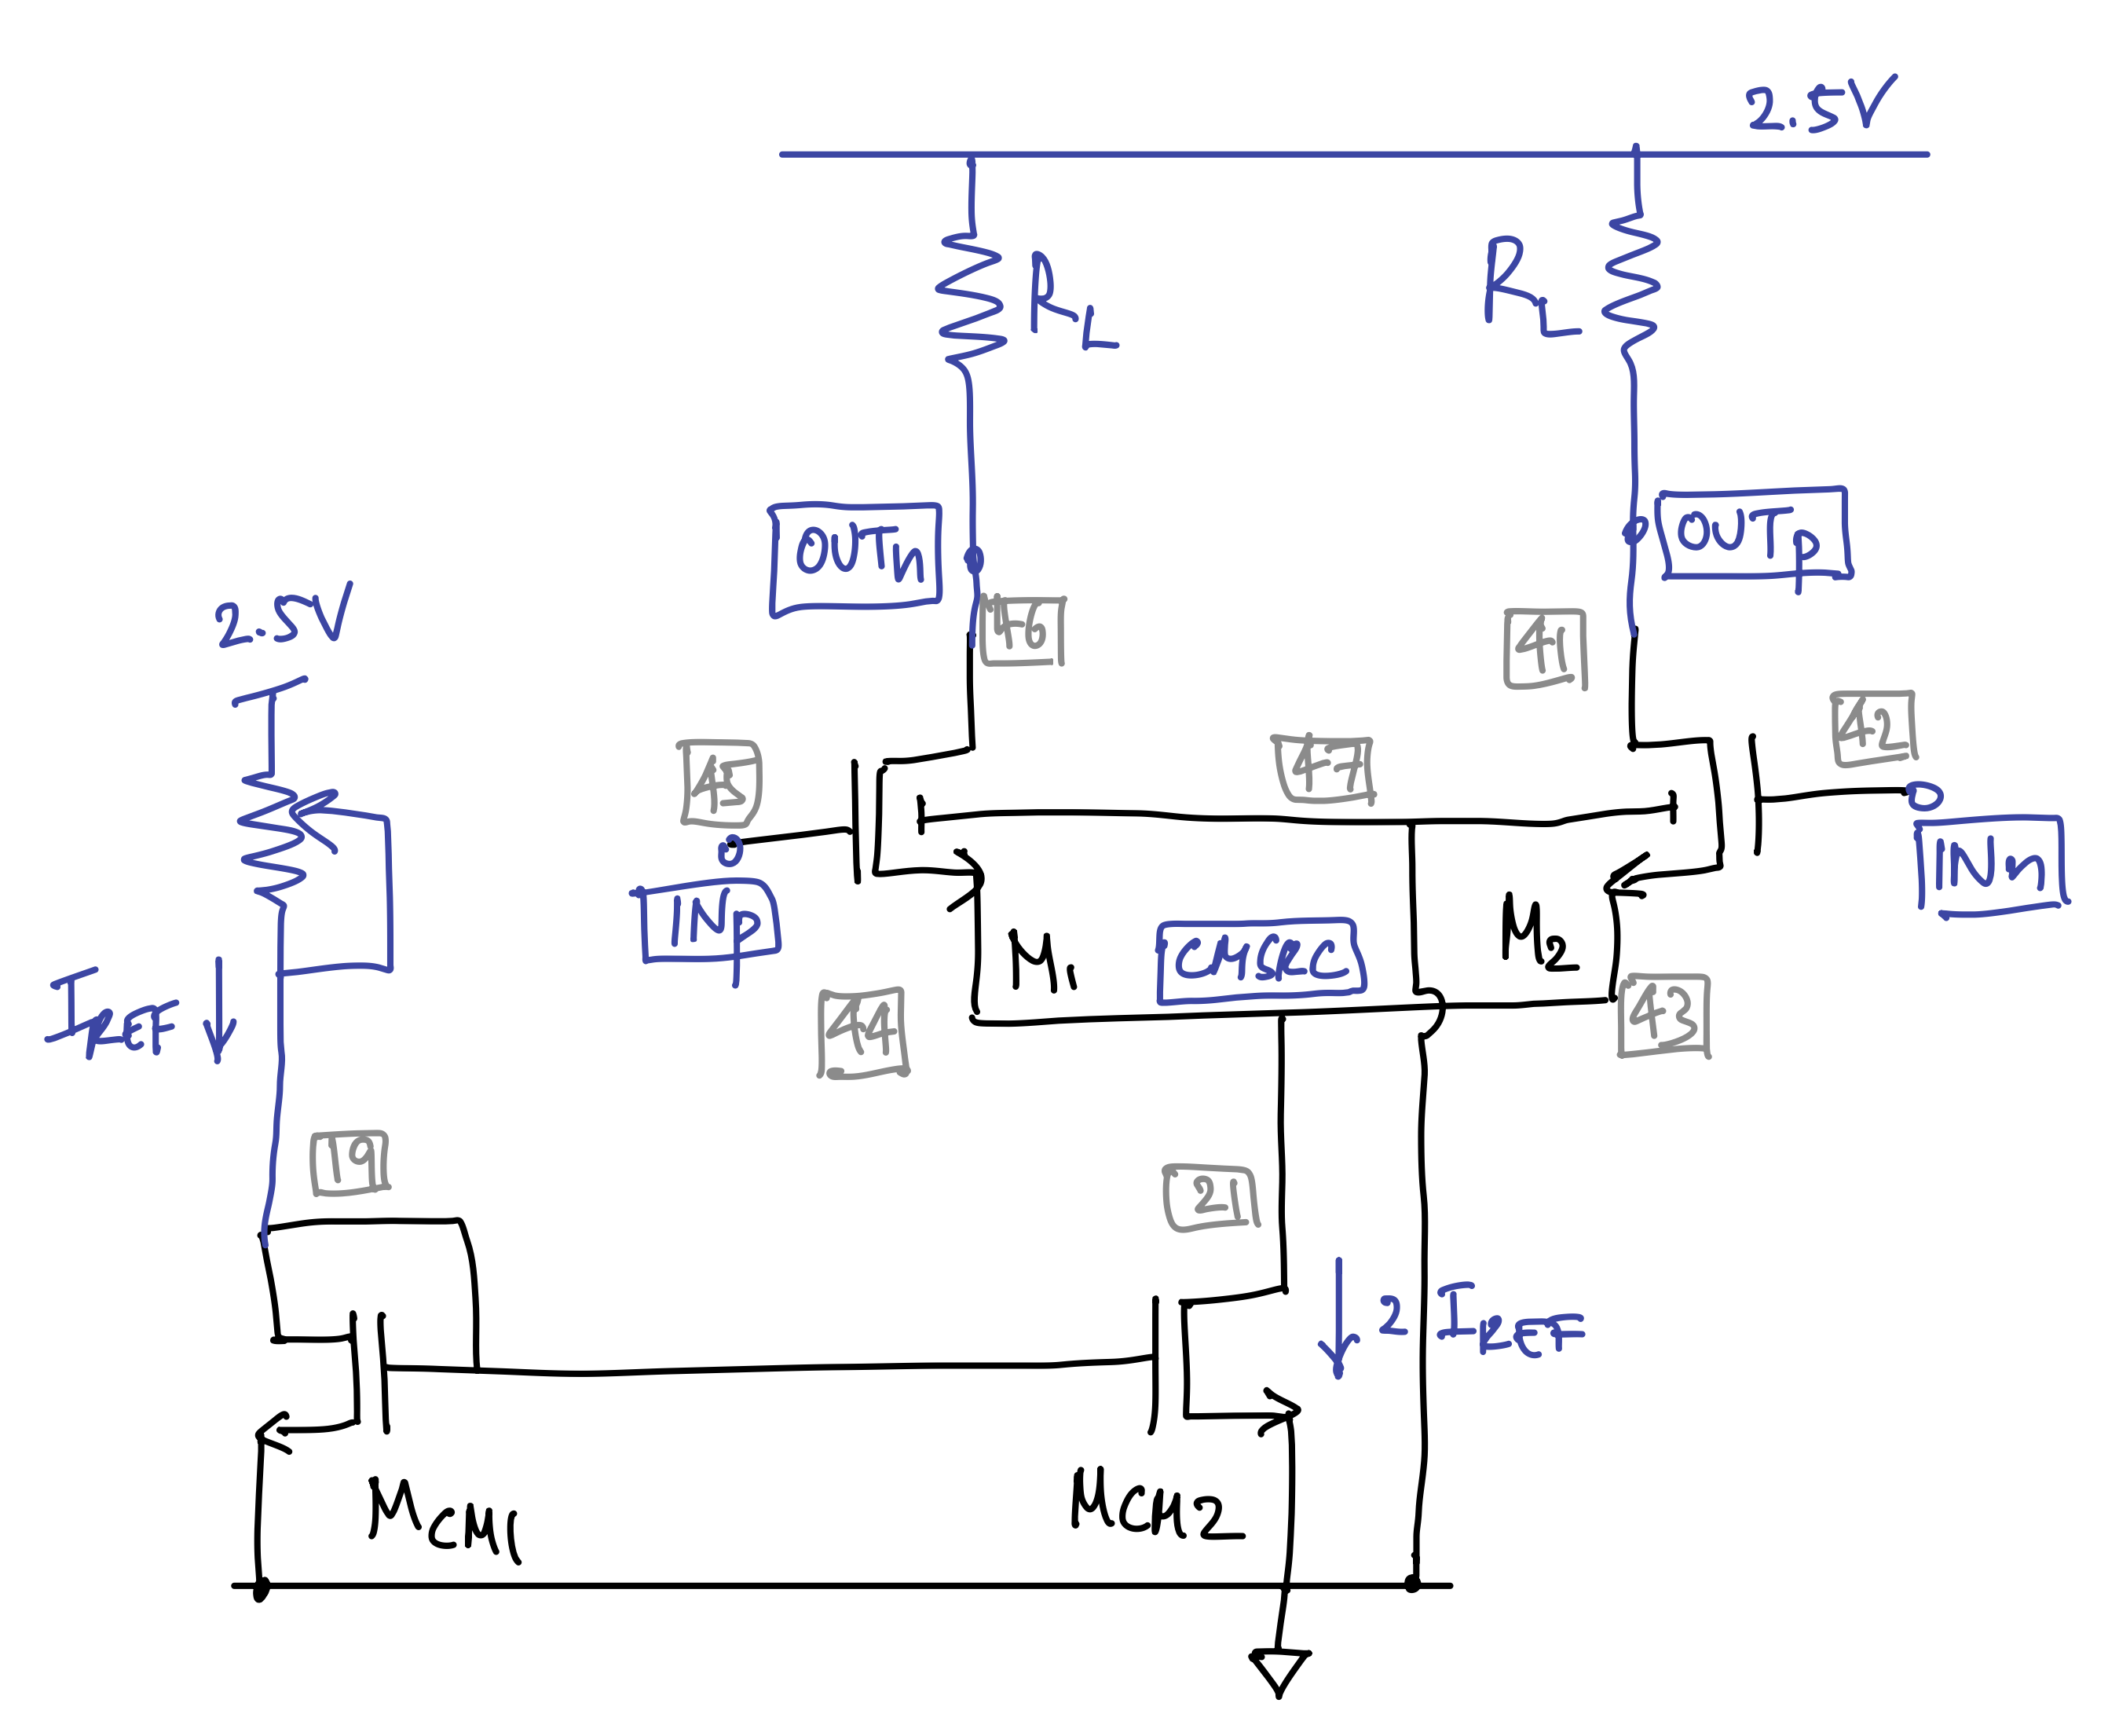 2.5V
R_L
R_L
OUTn
OUTp
46
41
2.5V
42
45
47
INn
INp
M1
M2
CMSRC
I_REF
44
43
19
21
2 I_REF
M_CM1
M_CM2